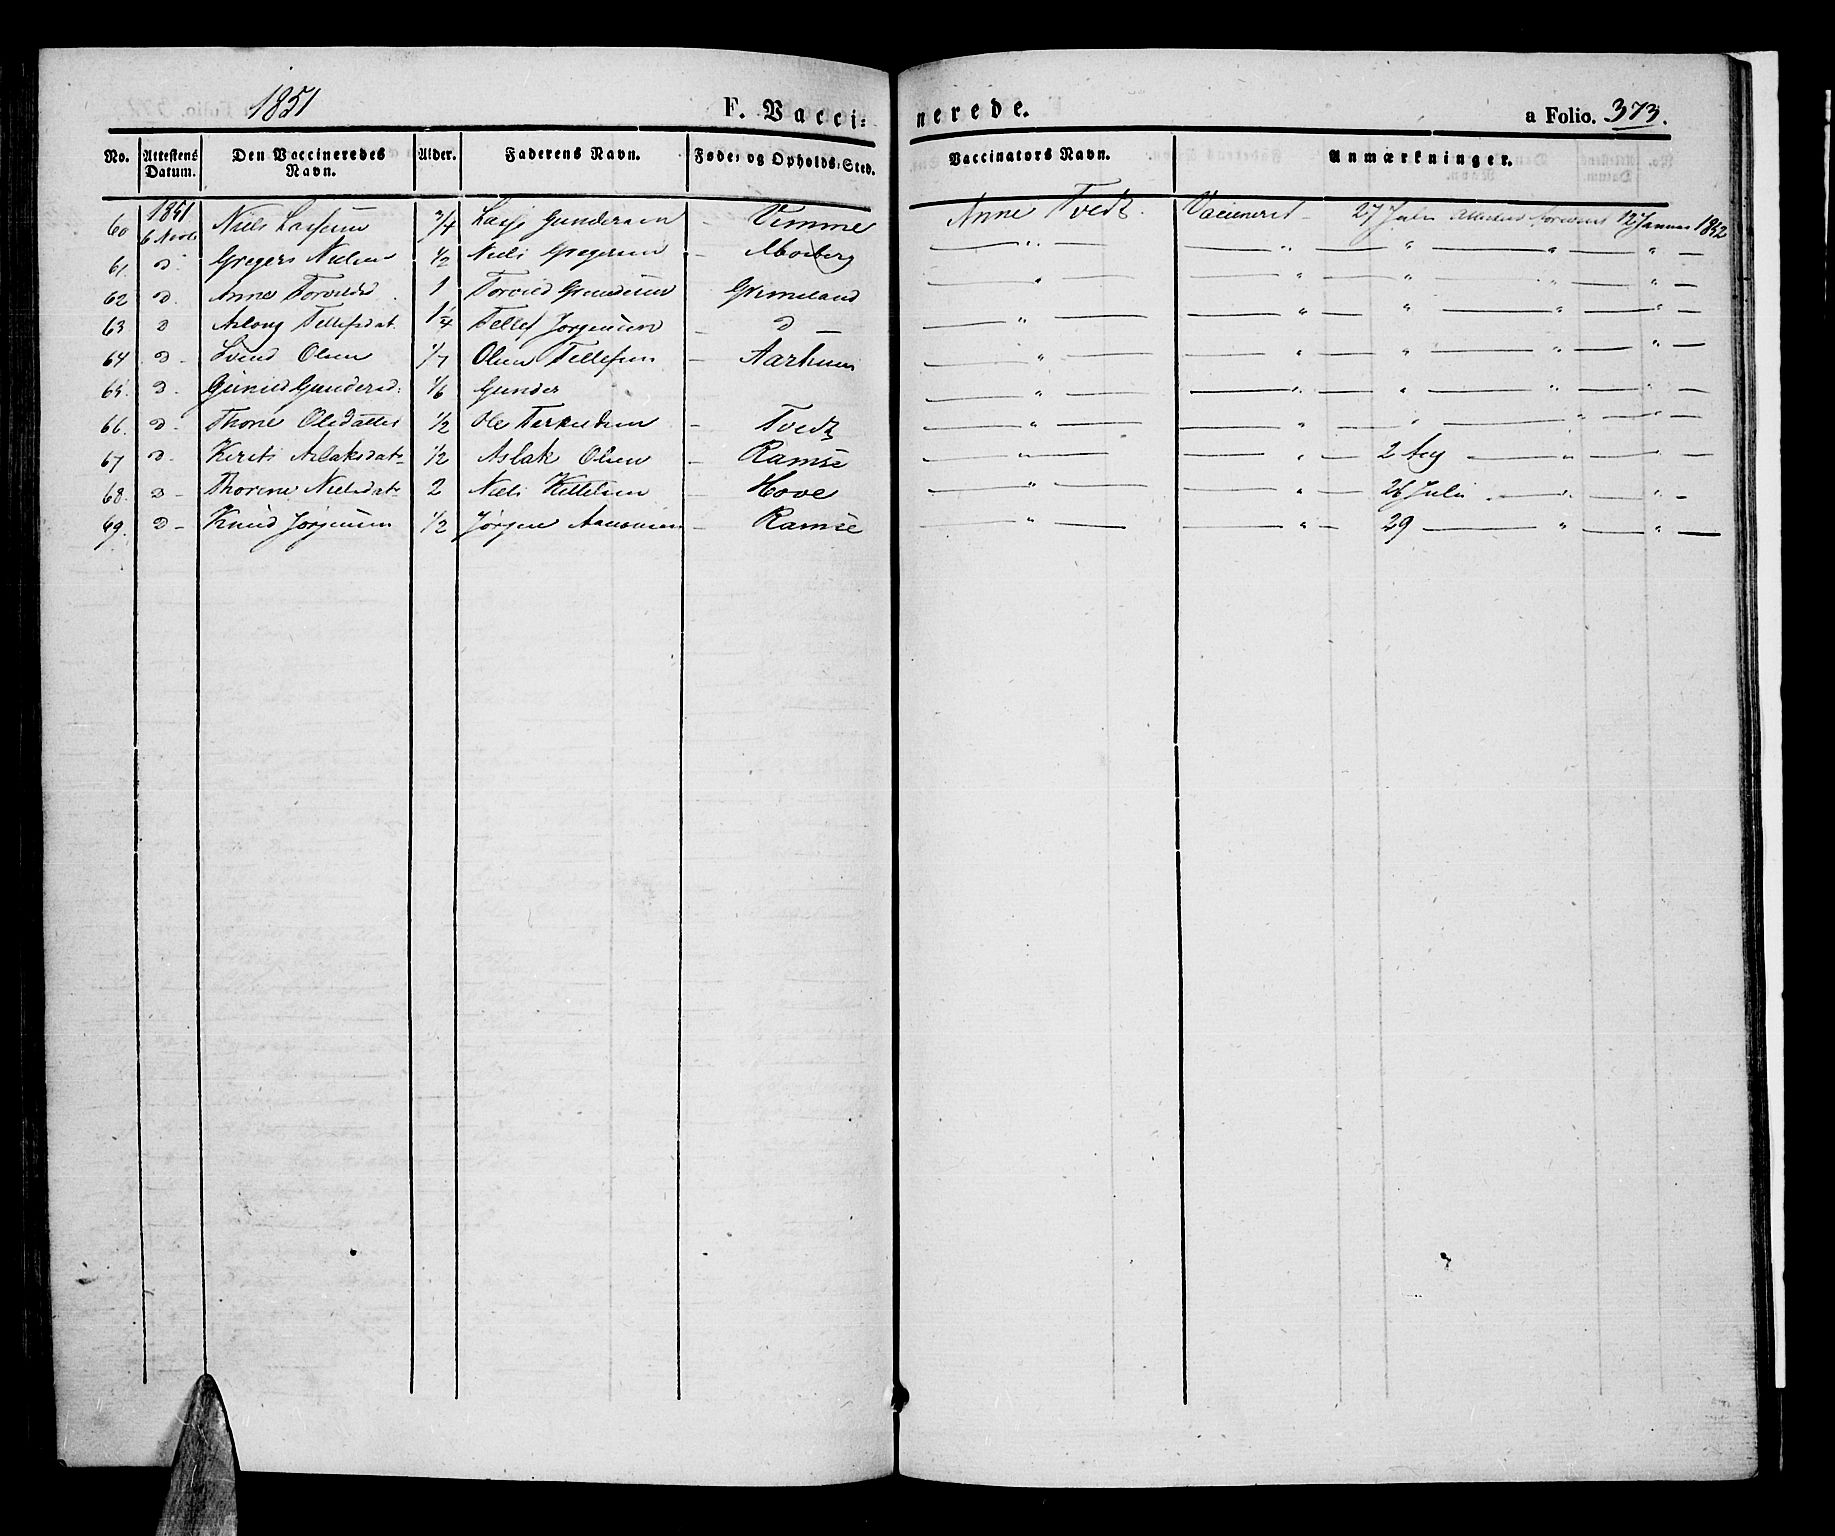 1851 F. Vacci= nerede. a Folio. 373.
No. Attestens Datum. Den Vaccineredes Navn. Alder. Faderens Navn. Føde= og Opholds=Sted. Vaccinators Navn. Anmærkninger.
1851
60 6 Niels 3/4 Gundersen - Vemme Anne Tvedt Vaccineret - 27 Juli 12 Januar 1852
61. D Gregers Nielsen 1/2 Niels Gregersen - Moeberg — " — — " — " — " — " —
62 D. Anne 1 Grimeland — " — — " — " — " — " —
63 D Asloug Tellefsdat. 1 1/4 Tellef Jørgensen - D — — " — — " — " — " — " —
64 D - Svend Olsen 1/7 Olsen Tellefsen - Aarhuus — " — — " — " — " — " —
65. D. Gundersd: 1/6 Gunder — " — — " — " — " — " —
66. D. Thone Olsdatter 1/2 Ole - Tvedt — " — — " — " — " — " —
67 D - Aslaksdat- 1/2 Aslak Olsen - Ramse — " — — " — 2 Aug — " — " —
68. D - Thorine Nielsdat- 2 Niels Kittelsen - Hove — " — — " — 26 Juli. — " — " —
69. D - Knud Jørgensen 1/2 Jørgen - Ramse — " — — " — 29 — " — " —